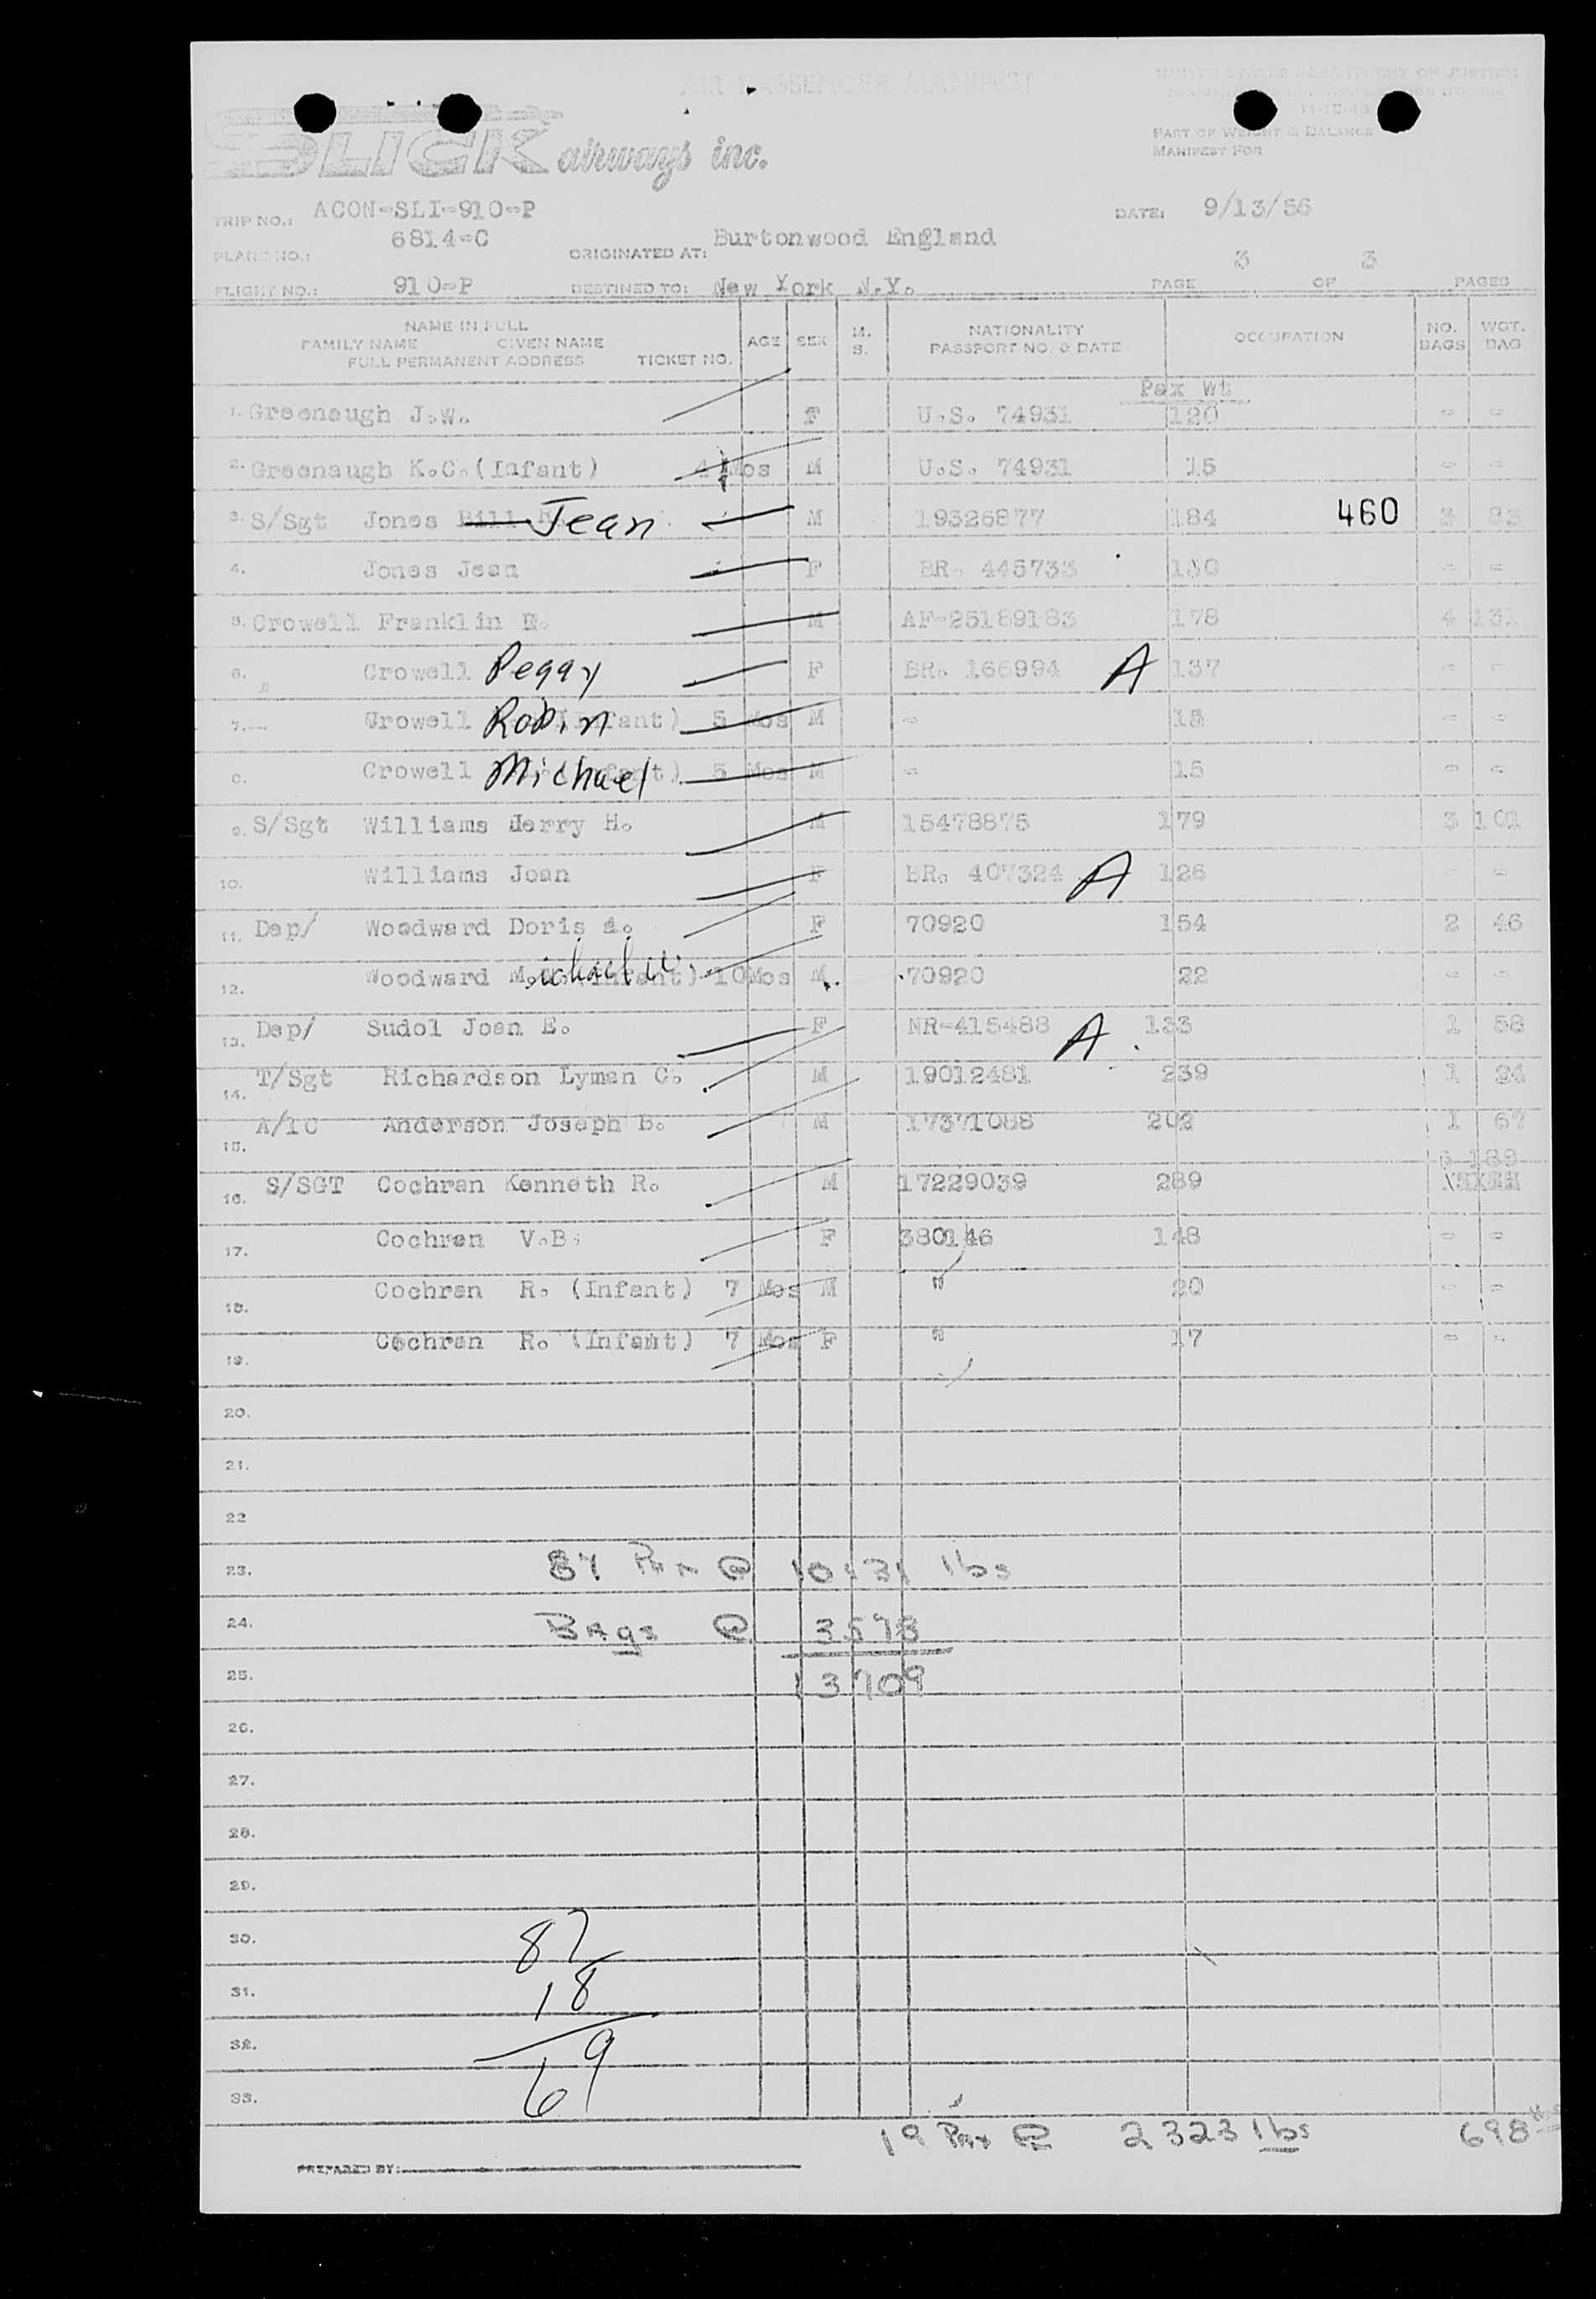 AIR PASSENGER MANIFEST
UNITED STATES DEPARTMENT OF JUSTICE
SLICK airways inc.
PART OF WEIGHT & BALANCE
MANIFEST FOR
TRIP NO.: ACON-SLI-910-P DATE: 9/13/56
PLANE NO.: 6814-C ORIGINATED AT: Burtonwood England
FLIGHT NO.: 910-P DESTINED TO: New York N.Y. PAGE 3 OF 3 PAGES
NAME IN FULL
FAMILY NAME GIVEN NAME
FULL PERMANENT ADDRESS TICKET NO. AGE SEX M. S. NATIONALITY PASSPORT NO. & DATE OCCUPATION NO. BAGS WGT. BAG
Pax Wt
1. Greenaugh J.W. F U.S. 74931 120 - -
2. Greenaugh K.C. (Infant) 4 Mos M U.S. 74931 15 - -
3. S/Sgt Jones Bill Jean M 19326877 184 460 3 83
4. Jones Jean F BR. 445733 130 - -
5. Crowell Franklin E. M AF-25189183 178 4 131
6. " Crowell Peggy F BR. 166994 A 137 - -
7. Crowell Robin (Infant) 5 Mos M - 15 - -
8. Crowell Michael (Infant) 5 Mos M - 15 - -
9. S/Sgt Williams Jerry H. M 15478875 179 3 101
10. Williams Joan F BR. 407324 A 126 - -
11. Dep/ Woodward Doris A. F 70920 154 2 46
12. Woodward Michael W. (Infant) 10 Mos M 70920 22 - -
13. Dep/ Sudol Joan E. F NR-415488 A 133 1 58
14. T/Sgt Richardson Lyman C. M 19012481 239 1 24
15. A/1C Anderson Joseph B. M 17371088 202 1 67
6 188
16. S/SGT Cochran Kenneth R. M 17229039 289
17. Cochran V.B. F 380146 148 - -
18. Cochran R. (Infant) 7 Mos M " 20 - -
19. Cochran R. (Infant) 7 Mos F " 17 - -
20.
21.
22
23. 87 Pax @ 10131 lbs
24. Bags @ 3578
25. 13709
26.
27.
28.
29.
30. 87
31. 18
32. 9
33. 6
19 Pax @ 2323 lbs 698
PREPARED BY: